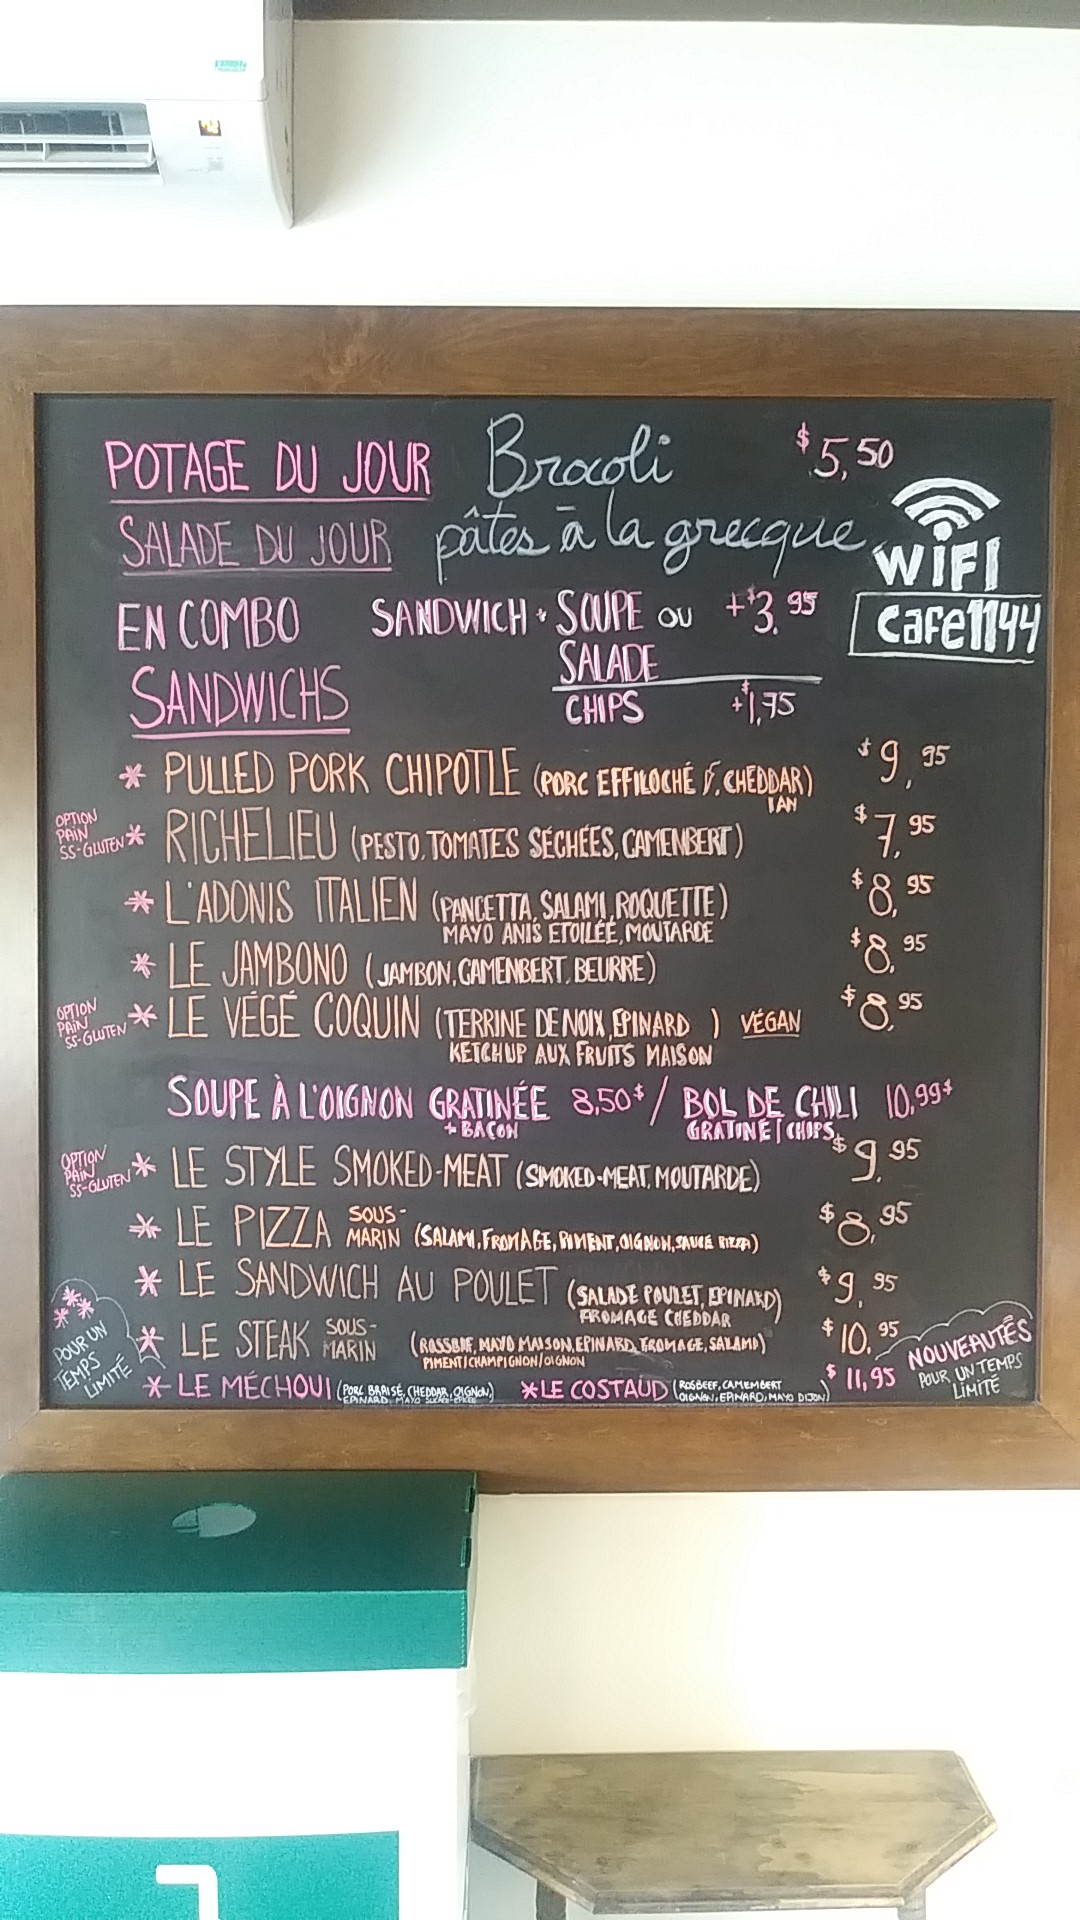 POTAGE DU JOUR Brocoli $5,50
SALADE DU JOUR pâtes à la grecque
WiFi
cafe1144
EN COMBO SANDWICH + SOUPE OU +$3.95
SALADE
CHIPS +$1,75
SANDWICHS
* PULLED PORK CHIPOTLE (PORC EFFILOCHÉ, CHEDDAR) $9,95
OPTION PAIN SS-GLUTEN * RICHELIEU (PESTO, TOMATES SÉCHÉES, CAMENBERT) $7,95
* L'ADONIS ITALIEN (PANCETTA, SALAMI, ROQUETTE) $8,95
MAYO ANIS ETOILÉE, MOUTARDE
* LE JAMBONO (JAMBON, CAMENBERT, BEURRE) $8,95
OPTION PAIN SS-GLUTEN * LE VÉGÉ COQUIN (TERRINE DE NOIX, EPINARD ) VÉGAN $8,95
KETCHUP AUX FRUITS MAISON
SOUPE À L'OIGNON GRATINÉE 8,50$ / BOL DE CHILI 10,99$
+ BACON GRATINÉ | CHIPS
OPTION PAIN SS-GLUTEN * LE STYLE SMOKED-MEAT (SMOKED-MEAT, MOUTARDE) $9,95
* LE PIZZA SOUS-MARIN (SALAMI, FROMAGE, PIMENT, OIGNON, SAUCE PIZZA) $8,95
* LE SANDWICH AU POULET (SALADE POULET, EPINARD) $9,95
FROMAGE CHEDDAR
* LE STEAK SOUS-MARIN (ROSSBIF, MAYO MAISON, EPINARD, FROMAGE, SALAMI) $10,95
PIMENT/CHAMPIGNON/OIGNON
* LE MÉCHOUI (PORC BRAISÉ, CHEDDAR, OIGNON,
EPINARD, MAYO
* LE COSTAUD (ROSBEEF, CAMEMBERT
OIGNON, EPINARD, MAYO DIJON) $11,95
***
POUR UN
TEMPS
LIMITÉ
NOUVEAUTÉS
POUR UN TEMPS
LIMITÉ